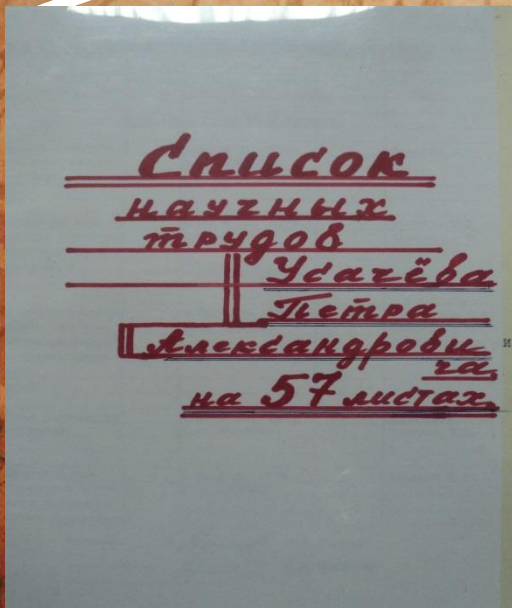 Список
научных
трудов
Усачёва
Петра
Александрови
ча
на 57 листах.